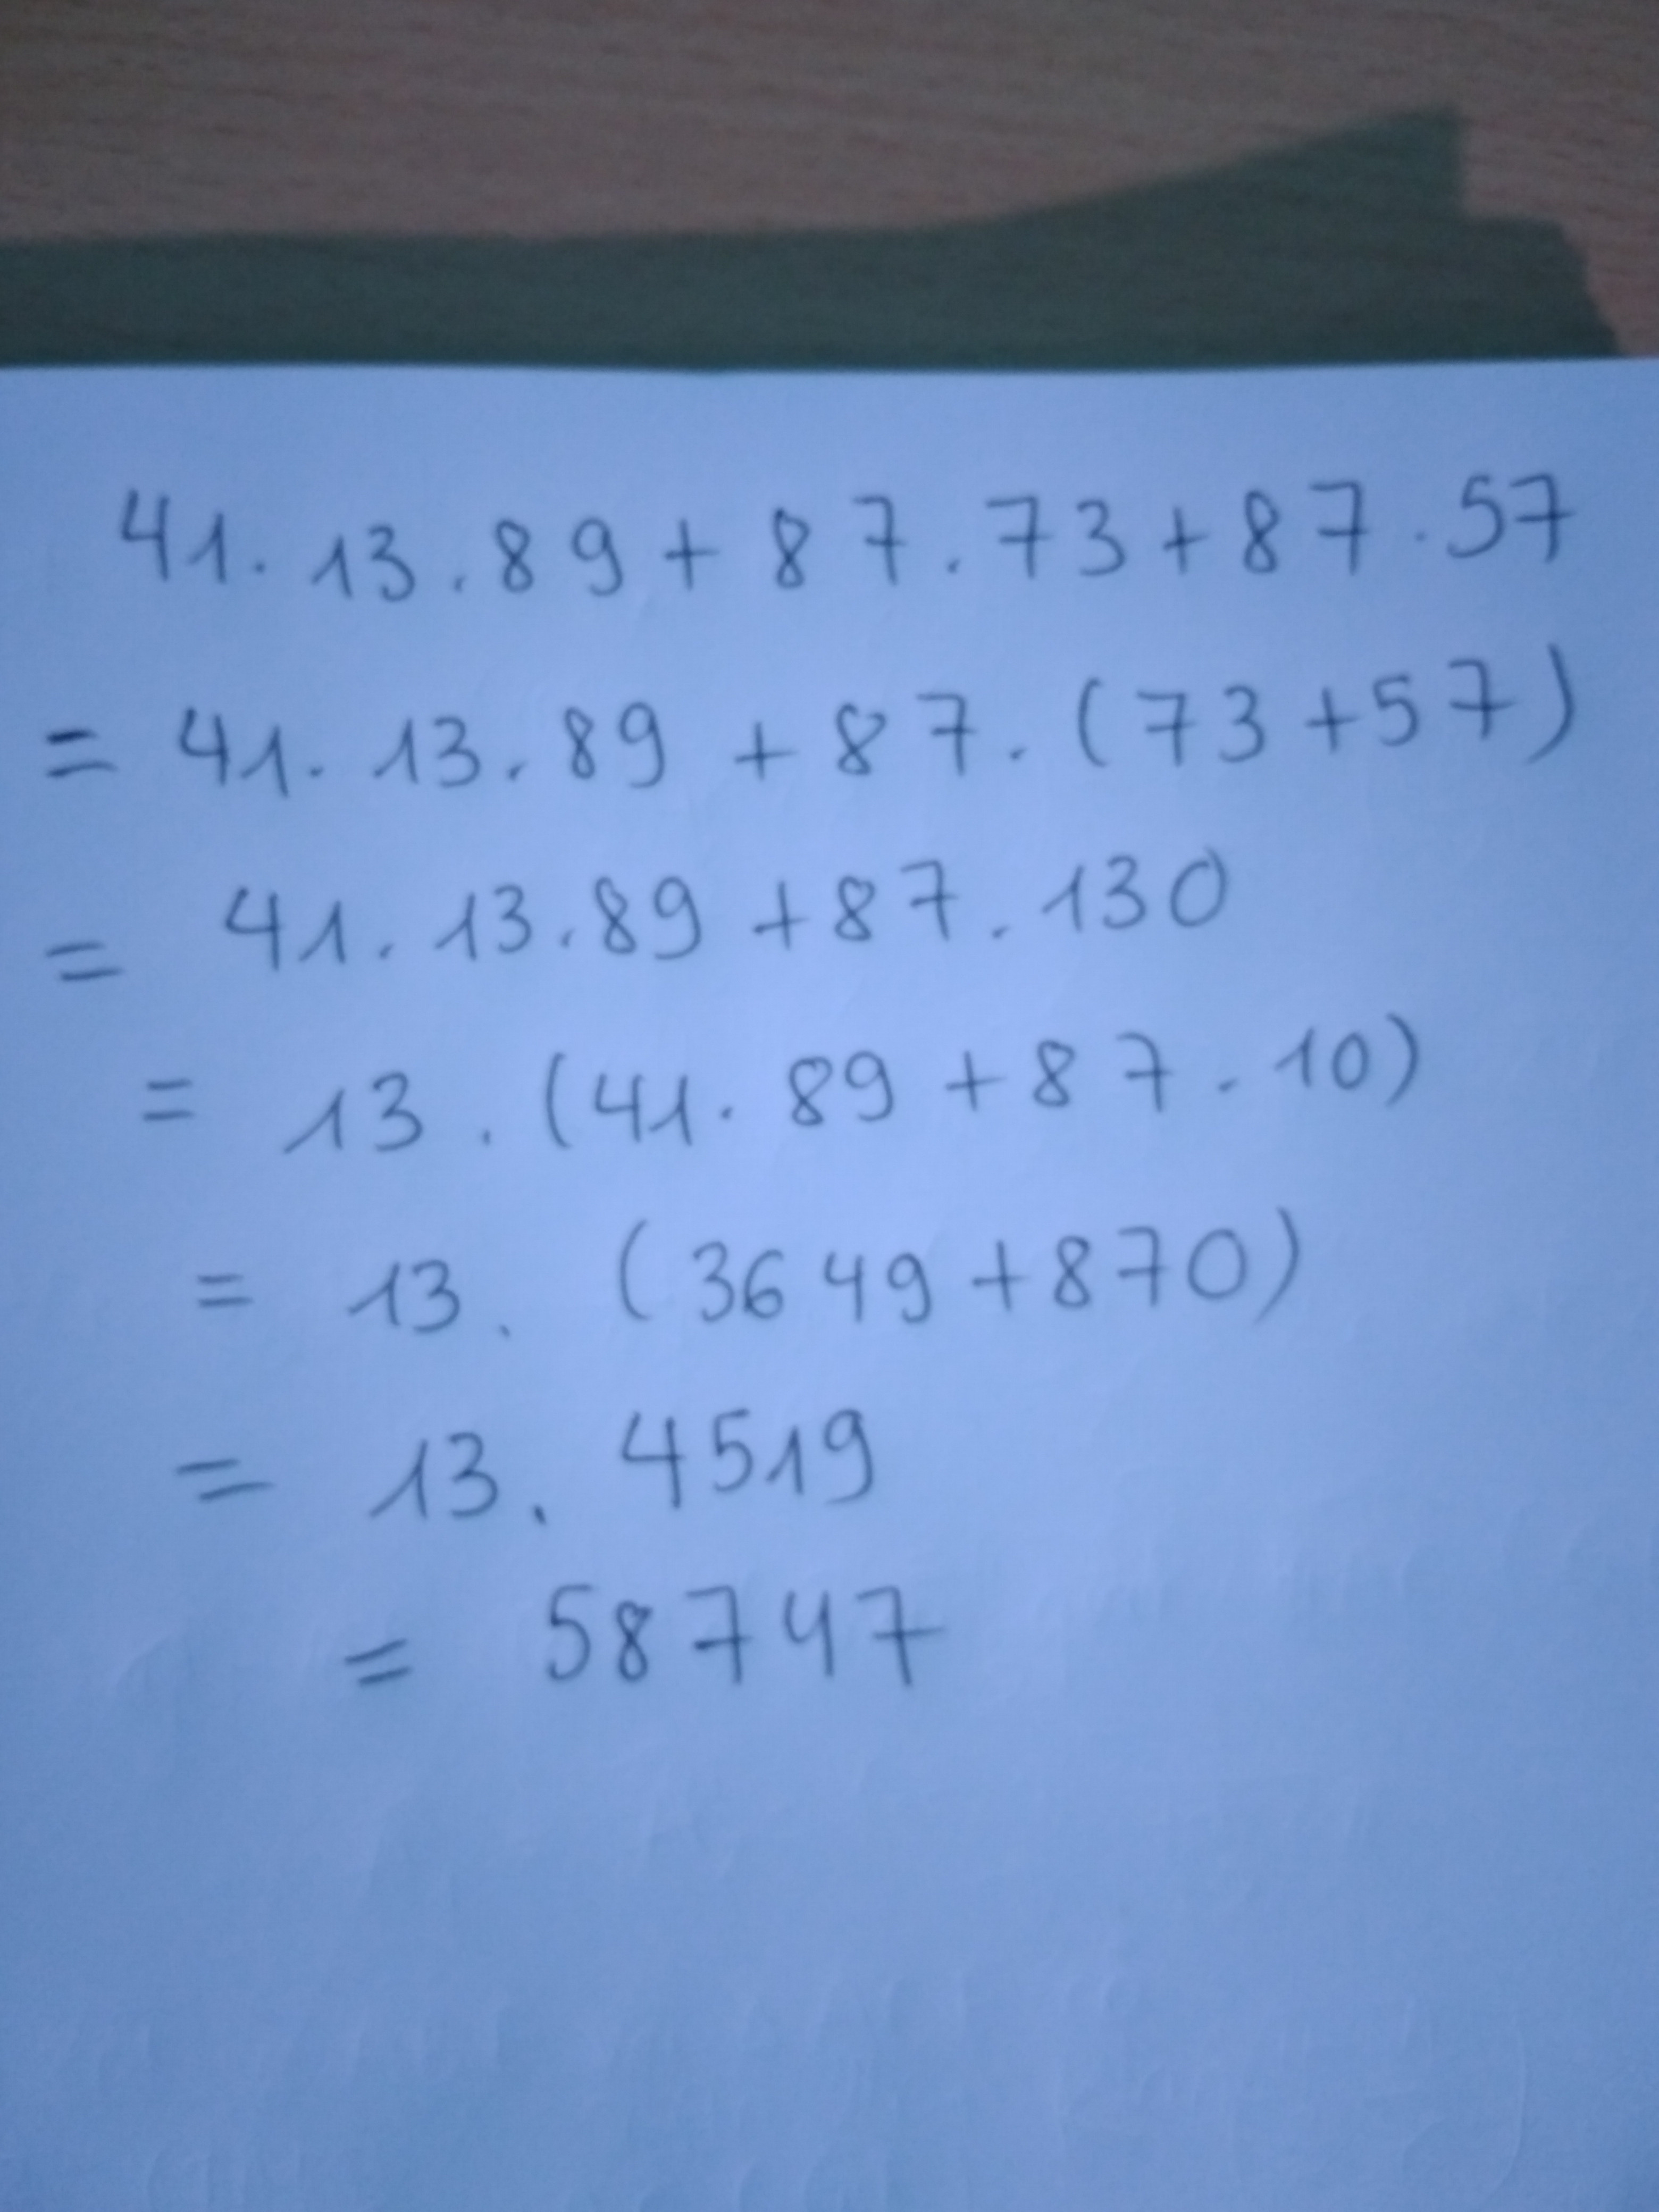 41. 13. 89 + 87. 73 + 87. 57
= 41. 13. 89 + 87. (73 + 57)
= 41. 13. 89 + 87. 130
= 13. (41. 89 + 87. 10)
= 13. (3649 + 870)
= 13. 4519
= 58747